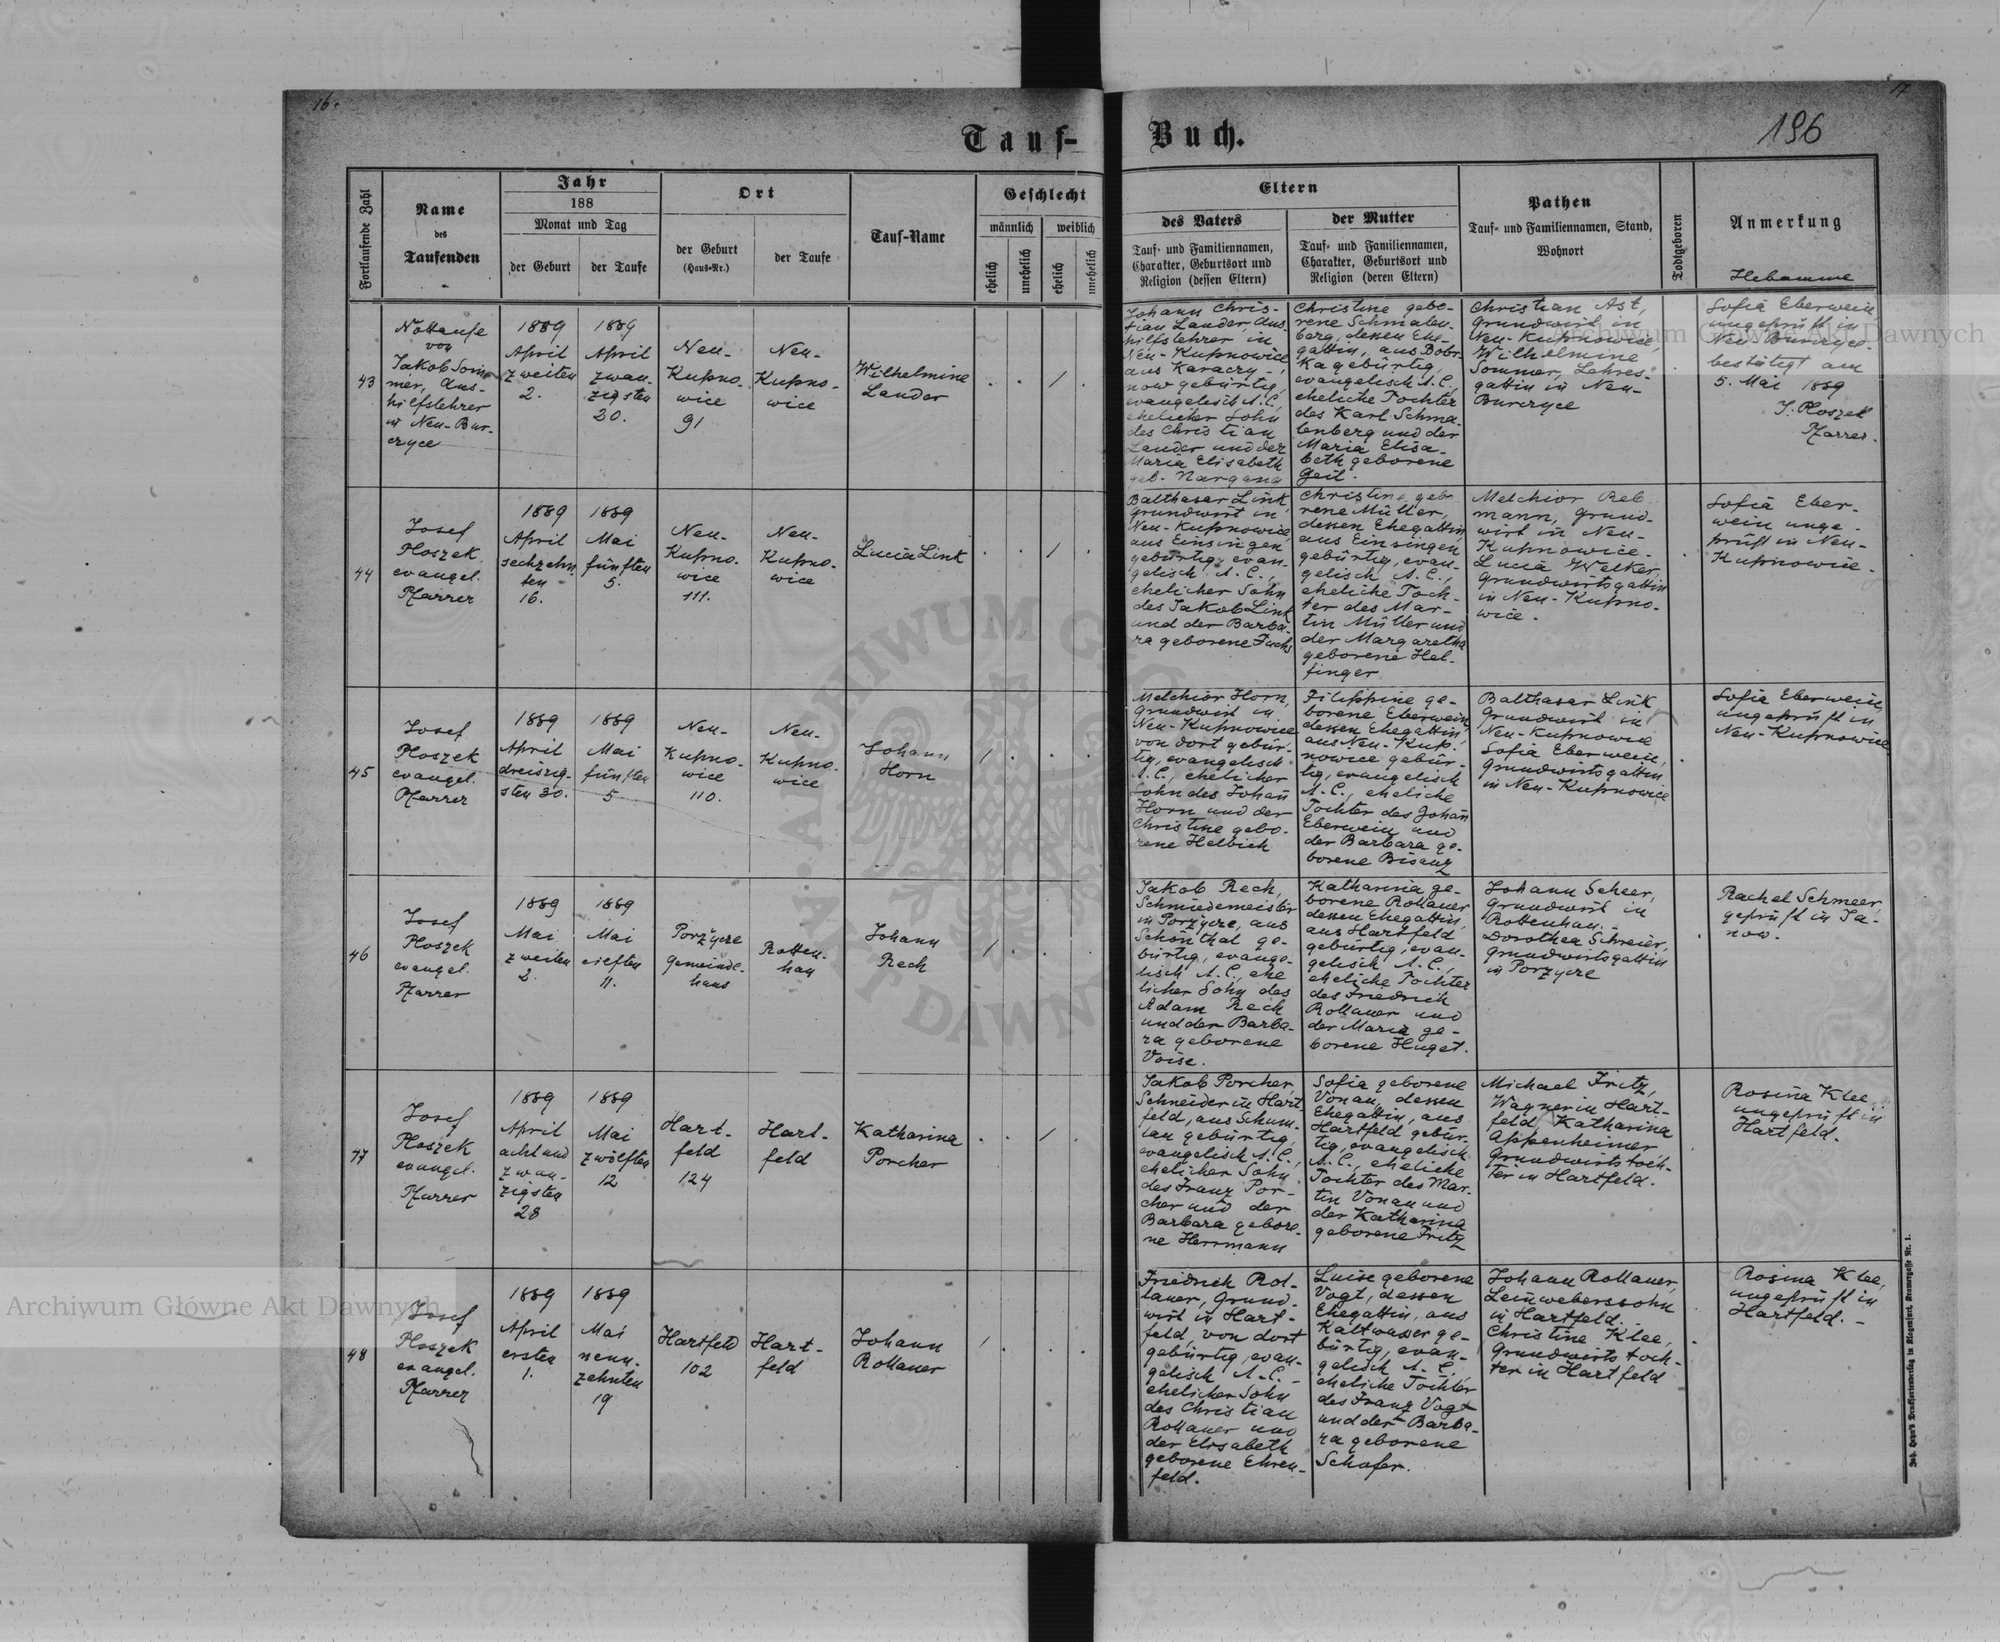 16.
17
Tauf-
Buch.
196
Fortlaufende Zahl
Name
des
Taufenden
Jahr
188
Monat und Tag
der Geburt
der Taufe
Ort
der Geburt
(Haus-Nr.)
der Taufe
Tauf-Name
Geschlecht
männlich
weiblich
ehelich
unehelich
ehelich
unehelich
Eltern
des Vaters
Tauf- und Familiennamen,
Charakter, Geburtsort und
Religion (dessen Eltern)
der Mutter
Tauf- und Familiennamen,
Charakter, Geburtsort und
Religion (deren Eltern)
Pathen
Tauf- und Familiennamen, Stand,
Wohnort
Todtgeboren
Anmerkung
Hebamme
43
Nottaufe
von
Jakob Som-
mer, Aus-
hilfslehrer
in Neu-Bur-
czyce
1889
April
zweiten
2.
1889
April
zwan-
zigsten
20.
Neu-
Kupno-
wice
91
Neu-
Kupno-
wice
Wilhelmine
Lander
Johann Chris-
tian Lander Aus
hilfslehrer in
Neu-Kupnowice
aus Karaczy-
now gebürtig,
evangelisch A.C.,
ehelicher Sohn
des Christian
Lander und der
Maria Elisabeth
geb. Nargang
Christine gebo-
rene Schmalen-
berg, dessen Ehe-
gattin, aus Bobr-
ka gebürtig,
evangelisch A.C.,
eheliche Tochter
des Karl Schma-
lenberg und der
Maria Elisa-
beth geborene
Geil.
Christian Ast,
Grundwirt in
Neu-Kupnowice,
Wilhelmine
Sommer, Lehrers-
gattin in Neu-
Burczyce
Sofia Eberwein,
ungeprüft in
Neu-Burczyce.
bestätigt am
5. Mai 1889
J. Ploszek
Pfarrer.
44
Josef
Ploszek
evangel.
Pfarrer
1889
April
sechzehn-
ten
16.
1889
Mai
fünften
5.
Neu-
Kupno-
wice
111.
Neu-
Kupno-
wice
Lucia Link
Balthasar Link,
Grundwirt in
Neu-Kupnowice,
aus Einsingen
gebürtig, evan-
gelisch A.C.,
ehelicher Sohn
des Jakob Link
und der Barba-
ra geborene Fuchs
Christine gebo-
rene Müller,
dessen Ehegattin,
aus Einsingen
gebürtig, evan-
gelisch A.C.,
eheliche Toch-
ter des Mar-
tin Müller und
der Margaretha
geborene Hel-
finger
Melchior Reb
mann, Grund-
wirt in Neu-
Kupnowice.
Lucia Welker,
Grundwirtsgattin
in Neu-Kupno-
wice.
Sofia Eber-
wein unge-
prüft in Neu-
Kupnowice.
45
Josef
Ploszek
evangel.
Pfarrer
1889
April
dreiszig-
sten 30.
1889
Mai
fünften
5
Neu-
Kupno-
wice
110.
Neu-
Kupno-
wice
Johann
Horn
Melchior Horn,
Grundwirt in
Neu-Kupnowice
von dort gebür-
tig, evangelisch
A.C., ehelicher
Sohn des Johan
Horn und der
Christine gebo-
rene Helbich
Filippine ge-
borene Eberwein
dessen Ehegattin,
aus Neu-Kup-
nowice gebür-
tig, evangelisch
A.C., eheliche
Tochter des Johan
Eberwein und
der Barbara ge-
borene Bisanz
Balthasar Link
Grundwirt in
Neu-Kupnowice
Sofia Eberwein,
Grundwirtsgattin
in Neu-Kupnowice
Sofia Eberwein,
ungeprüft in
Neu-Kupnowice
46
Josef
Ploszek
evangel.
Pfarrer
1889
Mai
zweiten
2.
1889
Mai
eilften
11.
Porzycze
Gemeinde-
haus
Rotten-
han
Johann
Rech
Jakob Rech,
Schmiedemeister
in Porzycze, aus
Schönthal ge-
bürtig, evange-
lisch A.C., ehe
licher Sohn des
Adam Rech
und der Barba-
ra geborene
Voise.
Katharina ge-
borene Rollauer,
dessen Ehegattin,
aus Hartfeld
gebürtig, evan-
gelisch A.C.,
eheliche Tochter
des Friedrich
Rollauer und
der Maria ge-
borene Huget.
Johann Scheer,
Grundwirt in
Rottenhan.-
Dorothea Schreier,
Grundwirtsgattin
in Porzycze
Rachel Schmeer,
geprüft in Ja-
now.
47
Josef
Ploszek
evangel.
Pfarrer
1889
April
acht und
zwan-
zigsten
28
1889
Mai
zwölften
12
Hart-
feld
124
Hart-
feld
Katharina
Porcher
Jakob Porcher,
Schneider in Hart
feld, aus Schum-
lau gebürtig,
evangelisch A.C.,
ehelicher Sohn
des Franz Por-
cher und der
Barbara gebore-
ne Herrmann
Sofia geborene
Vonau, dessen
Ehegattin, aus
Hartfeld gebür-
tig, evangelisch
A.C., eheliche
Tochter des Mar-
tin Vonau und
der Katharina
geborene Fritz
Michael Fritz,
Wagner in Hart-
feld, Katharina
Appenheimer,
Grundwirtstoch-
ter in Hartfeld.
Rosina Klee,
ungeprüft in
Hartfeld.
48
Josef
Ploszek
evangel.
Pfarrer
1889
April
ersten
1.
1889
Mai
neun-
zehnten
19
Hartfeld
102
Hart-
feld
Johann
Rollauer
Friedrich Rol-
lauer, Grund-
wirt in Hart-
feld, von dort
gebürtig, evan-
gelisch A.C.-
ehelicher Sohn
des Christian
Rollauer und
der Elisabeth
geborene Ehren-
feld.
Luise geborene
Vogt, dessen
Ehegattin, aus
Kaltwasser ge-
bürtig, evan-
gelisch A.C.,
eheliche Tochter
des Franz Vogt
und der Barba-
ra geborene
Schäfer.
Johann Rollauer,
Leinweberssohn
in Hartfeld.
Christine Klee,
Grundwirtstoch-
ter in Hartfeld
Rosina Klee,
ungeprüft in
Hartfeld.-
Archiwum Główne Akt Dawnych
Archiwum Główne Akt Dawnych